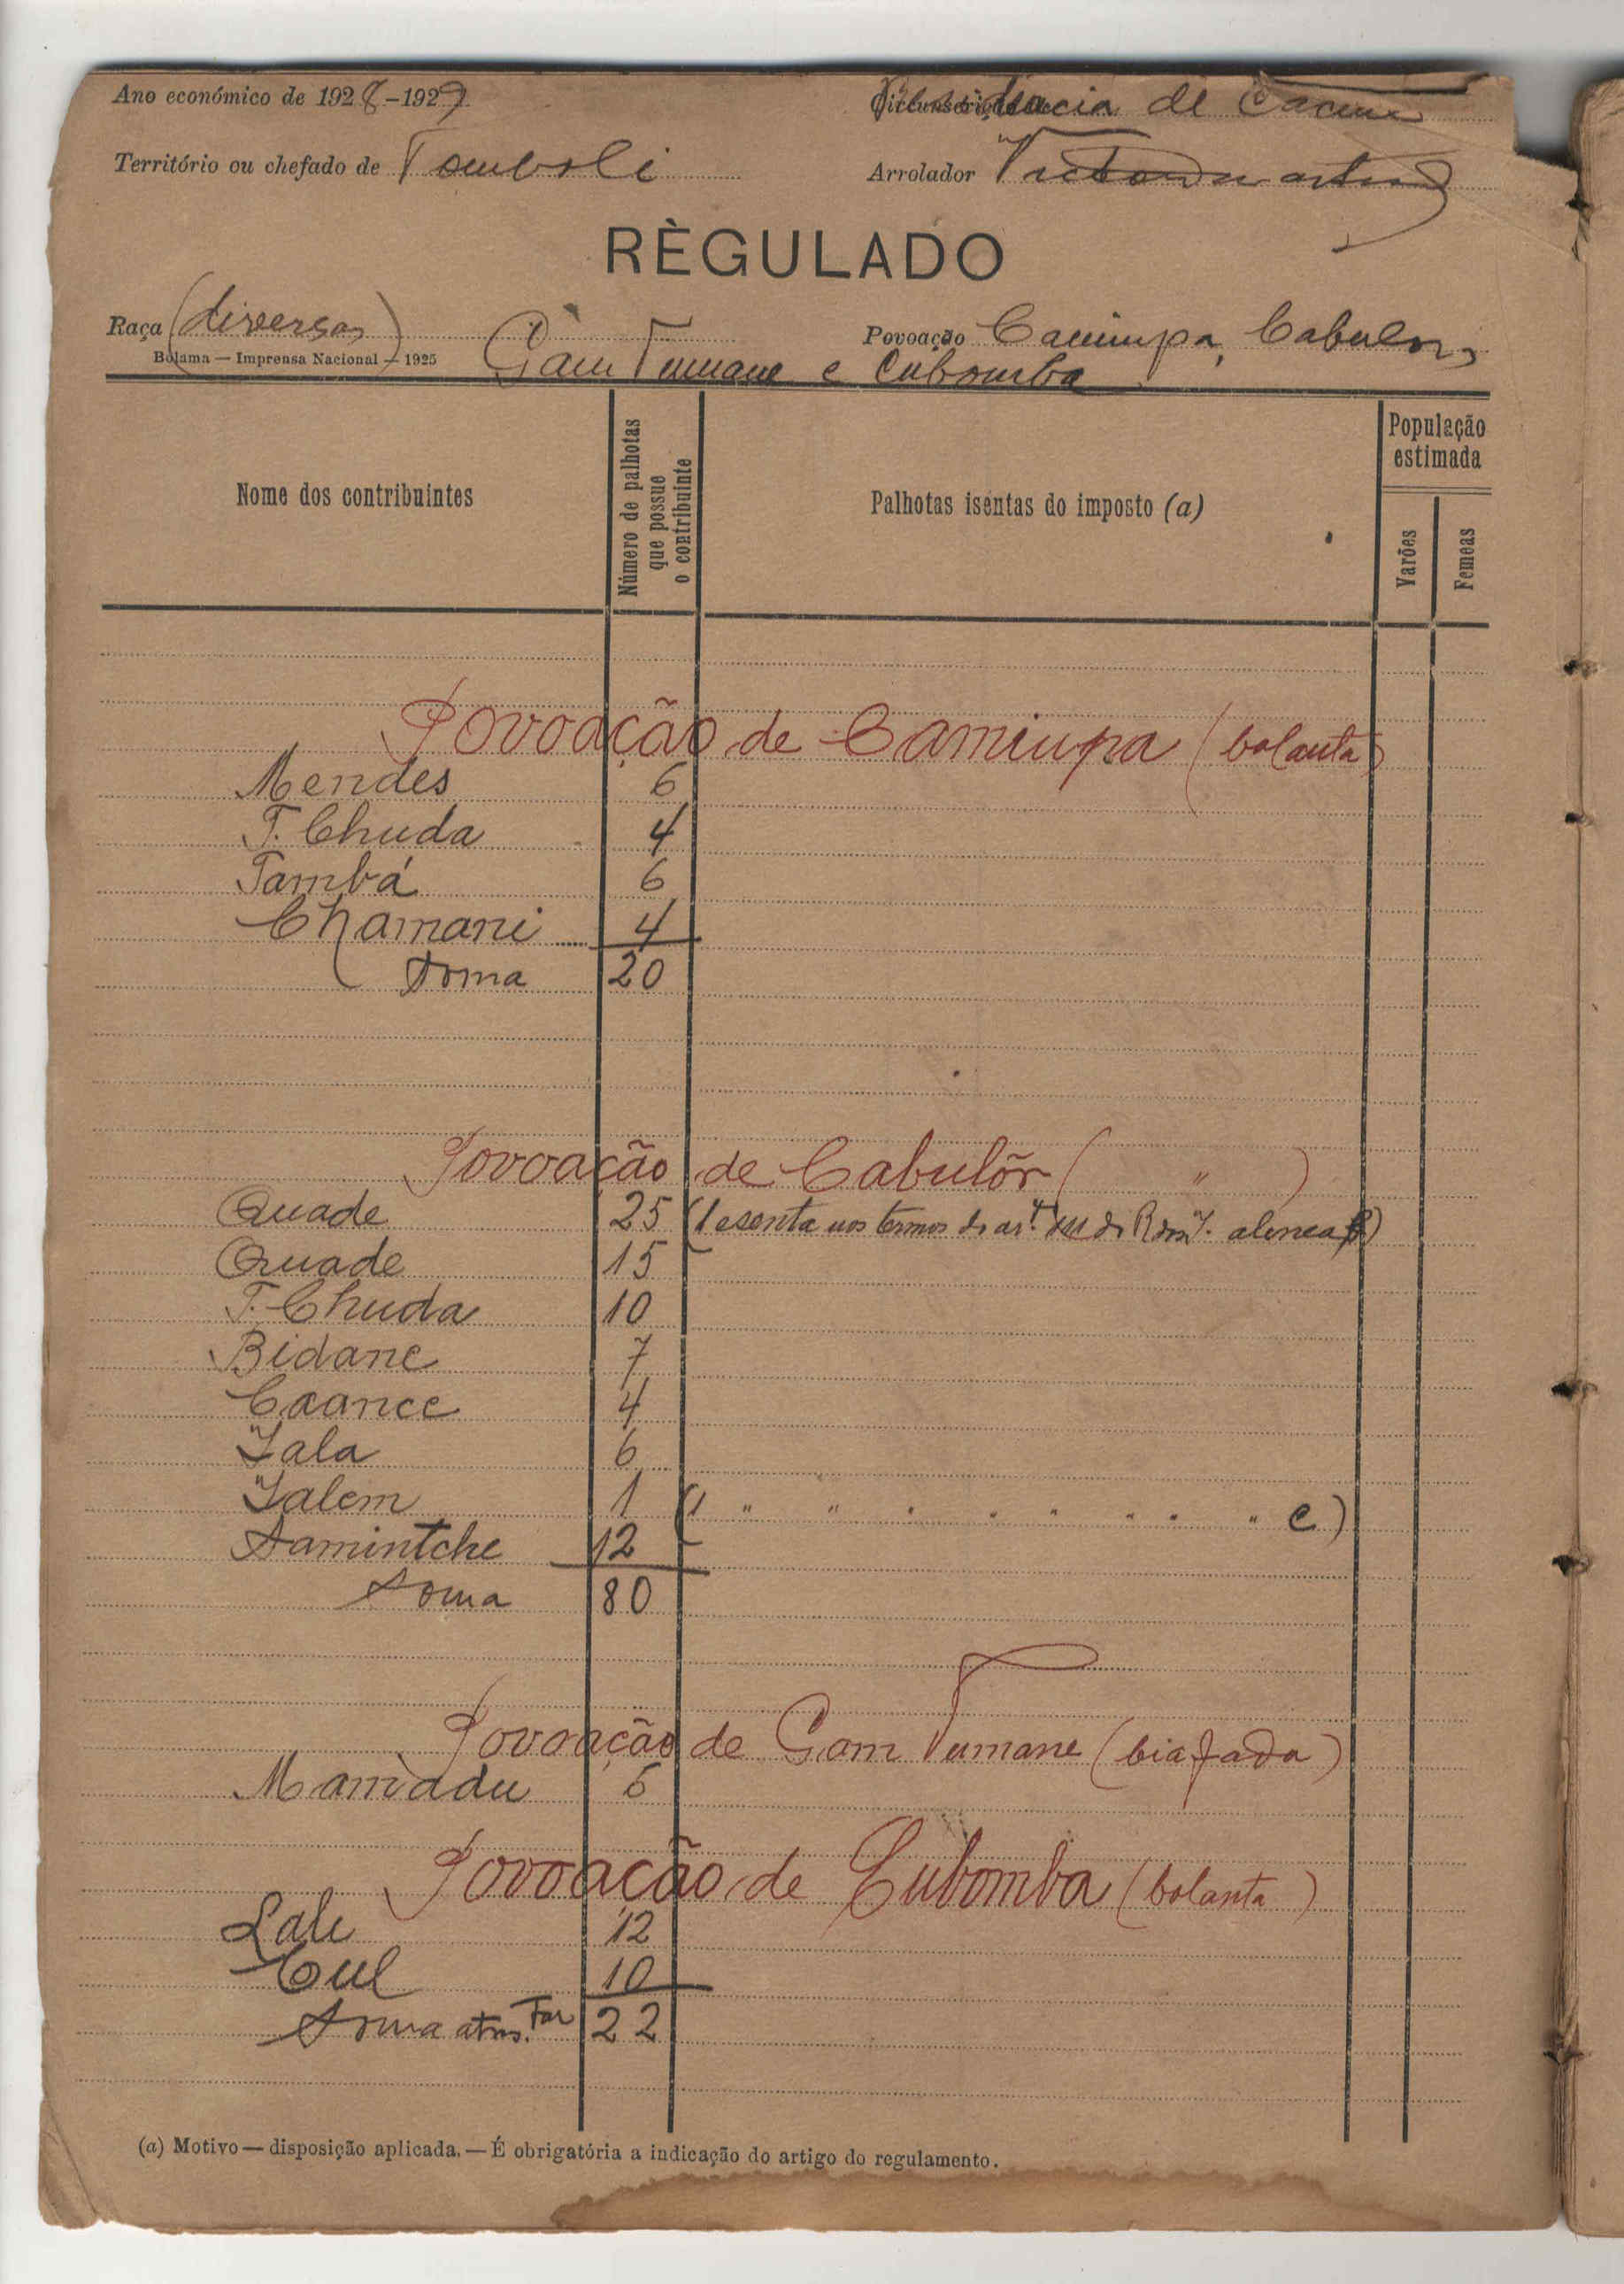 Ano económico de 1928-1929 de Cacine
Território ou chefado de Tomboli Arrolador Victor Martins
RÈGULADO
Raça (diversas) Povoação Camiupa, Cabulor,
Bolama — Imprensa Nacional — 1925 Gam Tumane e Cubomba
Nome dos contribuintes
Número de palhotas
que possue
o contribuinte
Palhotas isentas do imposto (a)
População
estimada
Varões
Femeas
Povoação de Camiupa (balanta)
Mendes 6
T. Chuda 4
Tambá 6
Chamani 4
Soma 20
Povoação de Cabulõr ( " )
Quade 25 (1 esenta nos termos do art. do alenea )
Quade 15
T. Chuda 10
Bidane 7
Caance 4
Iala 6
Ialem 1 (1 " " " " " " " " c)
Samintche 12
Soma 80
Povoação de Gam Tumane (biafada)
Mamadu 6
Povoação de Cubomba (balanta)
Lale 12
Cul 10
Soma 22
(a) Motivo — disposição aplicada. — É obrigatória a indicação do artigo do regulamento.